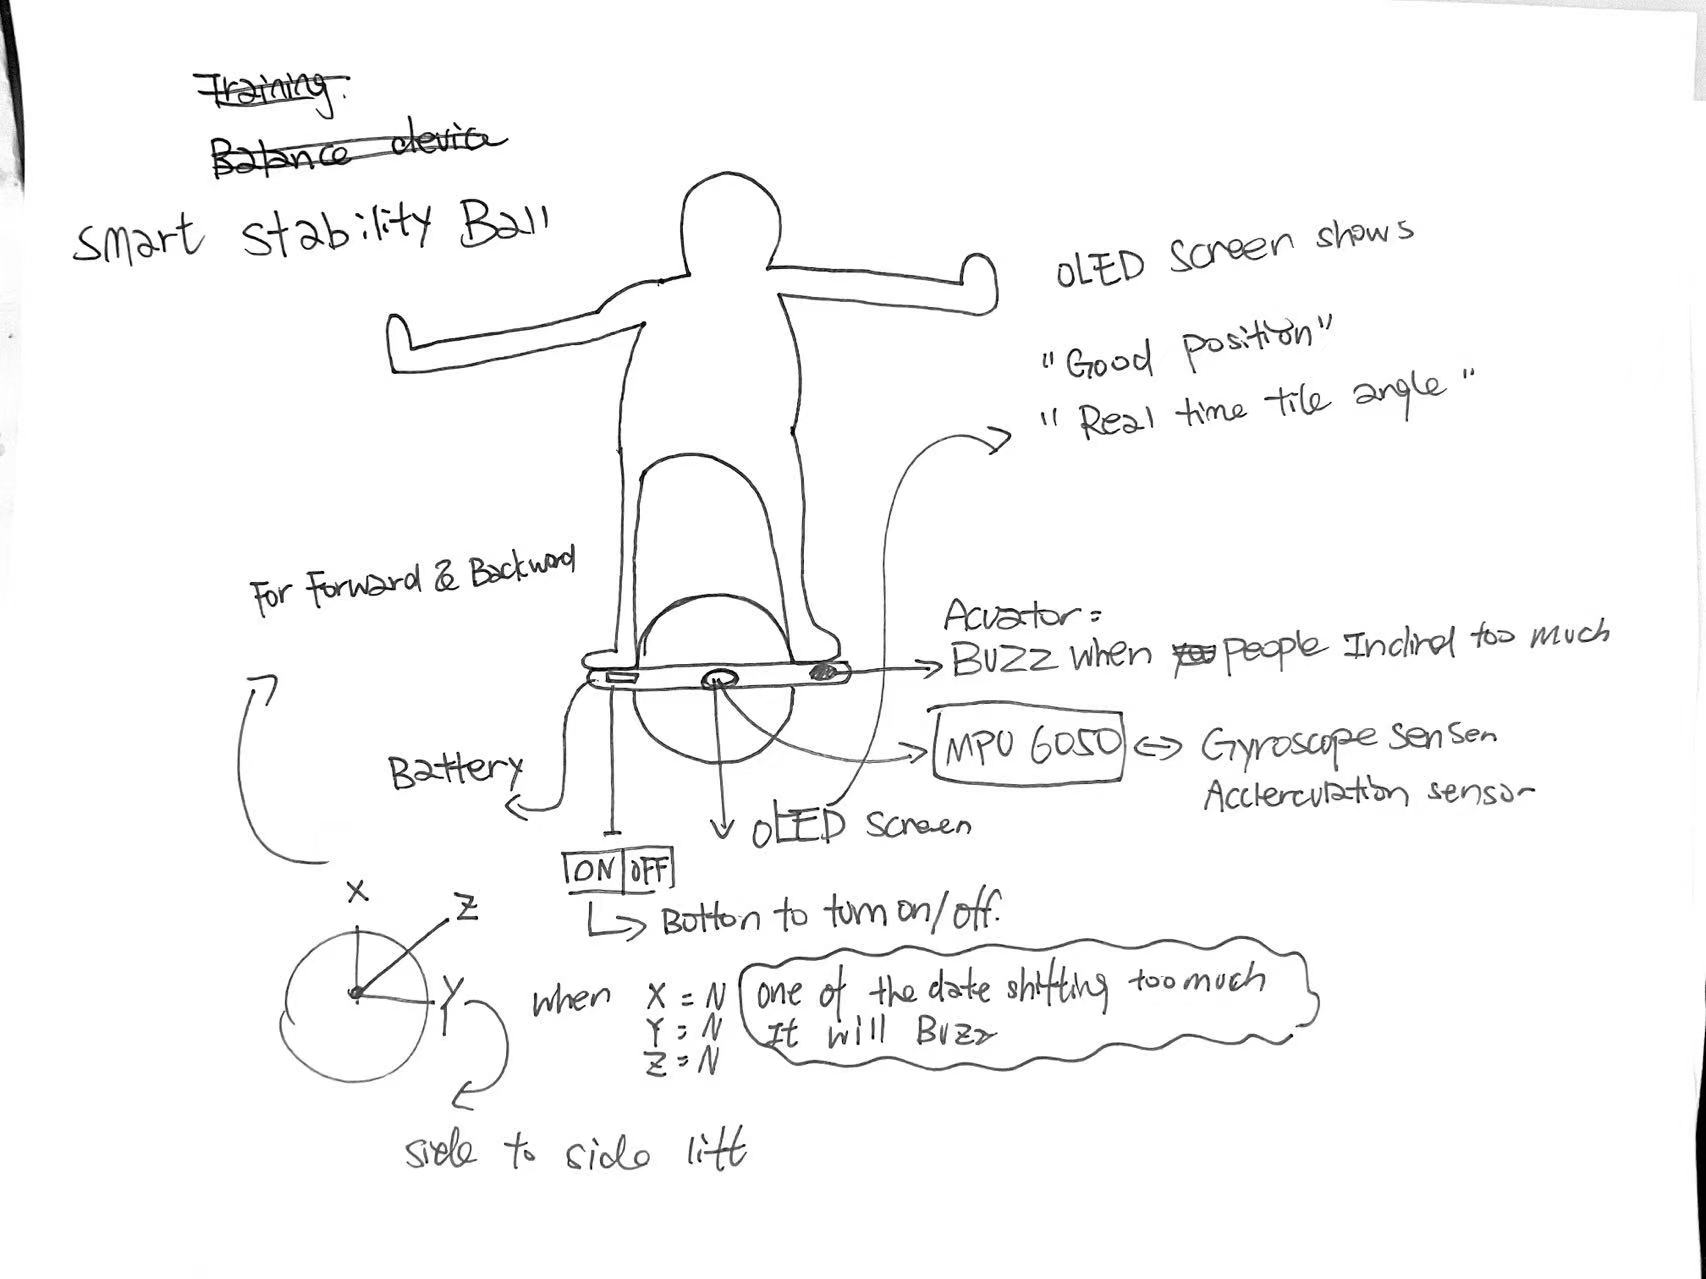 Training.
Balance device
smart stability Ball
OLED screen shows
"Good position"
"Real time tile angle"
For Forward & Backward
Acuator:
BUZZ when people Inclind too much
Battery
MPU 6050 <-> Gyroscope sensen
Acclerculation sensor
OLED screen
ON OFF
Botton to turn on/off.
X
Z
Y
when X = N one of the date shifting too much
Y = N It will Buzz
Z = N
side to side litt